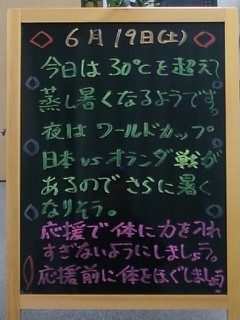 6月19日(土)
今日は 30℃を超えて
蒸し暑くなるようですっ
夜は ワールドカップ
日本 vs オランダ 戦が
あるので さらに 暑く
なりそう。
応援で 体に 力を入れ
すぎないようにしましょう。
応援前に体をほぐしましょう